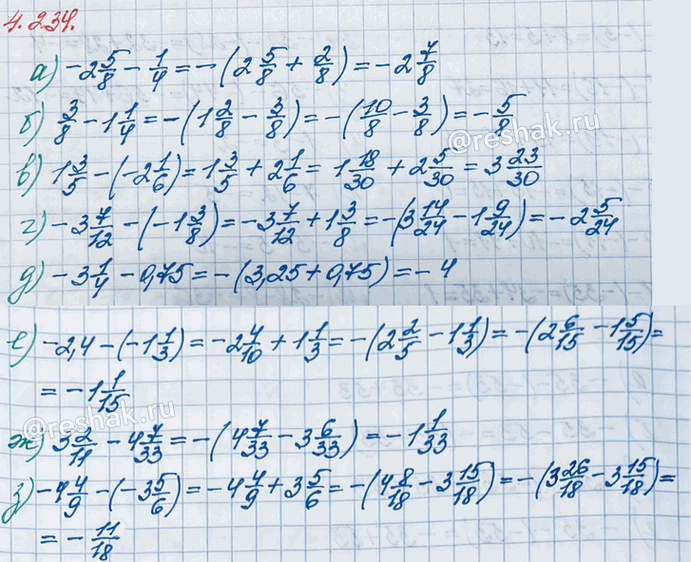 4.234.
а) -2 5/8 - 1/4 = -(2 5/8 + 2/8) = -2 7/8
б) 3/8 - 1 1/4 = -(1 2/8 - 3/8) = -(10/8 - 3/8) = -5/8
©reshak.ru
в) 1 3/5 - (-2 1/6) = 1 3/5 + 2 1/6 = 1 18/30 + 2 5/30 = 3 23/30
г) -3 7/12 - (-1 3/8) = -3 7/12 + 1 3/8 = -(3 14/24 - 1 9/24) = -2 5/24
д) -3 1/4 - 0,75 = -(3,25 + 0,75) = -4
е) -2,4 - (-1 1/3) = -2 4/10 + 1 1/3 = -(2 2/5 - 1 1/3) = -(2 6/15 - 1 5/15) =
= -1 1/15
©reshak.ru
ж) 3 2/11 - 4 7/33 = -(4 7/33 - 3 6/33) = -1 1/33
з) -4 4/9 - (-3 5/6) = -4 4/9 + 3 5/6 = -(4 8/18 - 3 15/18) = -(3 26/18 - 3 15/18) =
= -11/18
©reshak.ru